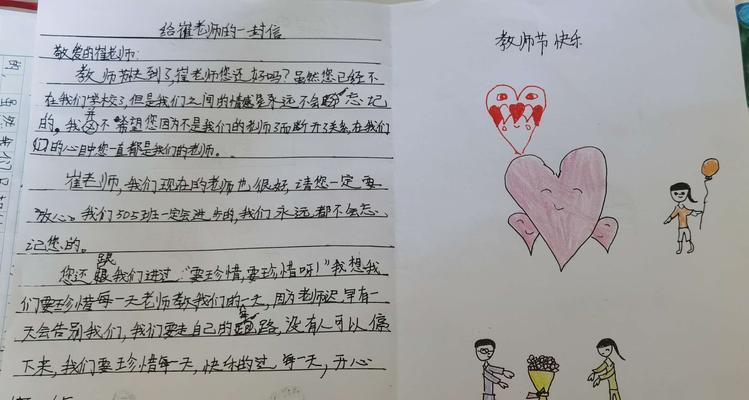 给崔老师的一封信
敬爱的崔老师:
教师节快到了,崔老师您还好吗?虽然您已经不
在我们学校了,但是我们之间的情感是永远不会忘记
的。我并不希望您因为不是我们的老师了而断开了关系,在我们
的心目中您一直都是我们的老师。
崔老师,我们现在的老师也很好,请您一定要
放心。我们505班一定会进步的,我们永远都不会忘
记您的。
您还跟我们讲过:“要珍惜,要珍惜呀!”我想我
们要珍惜每一天老师教我们的一天,因为老师迟早有
一天会告别我们,我们要走自己的路,没有人可以停
下来,我们要珍惜每一天,快乐的过每一天,开心
教师节快乐